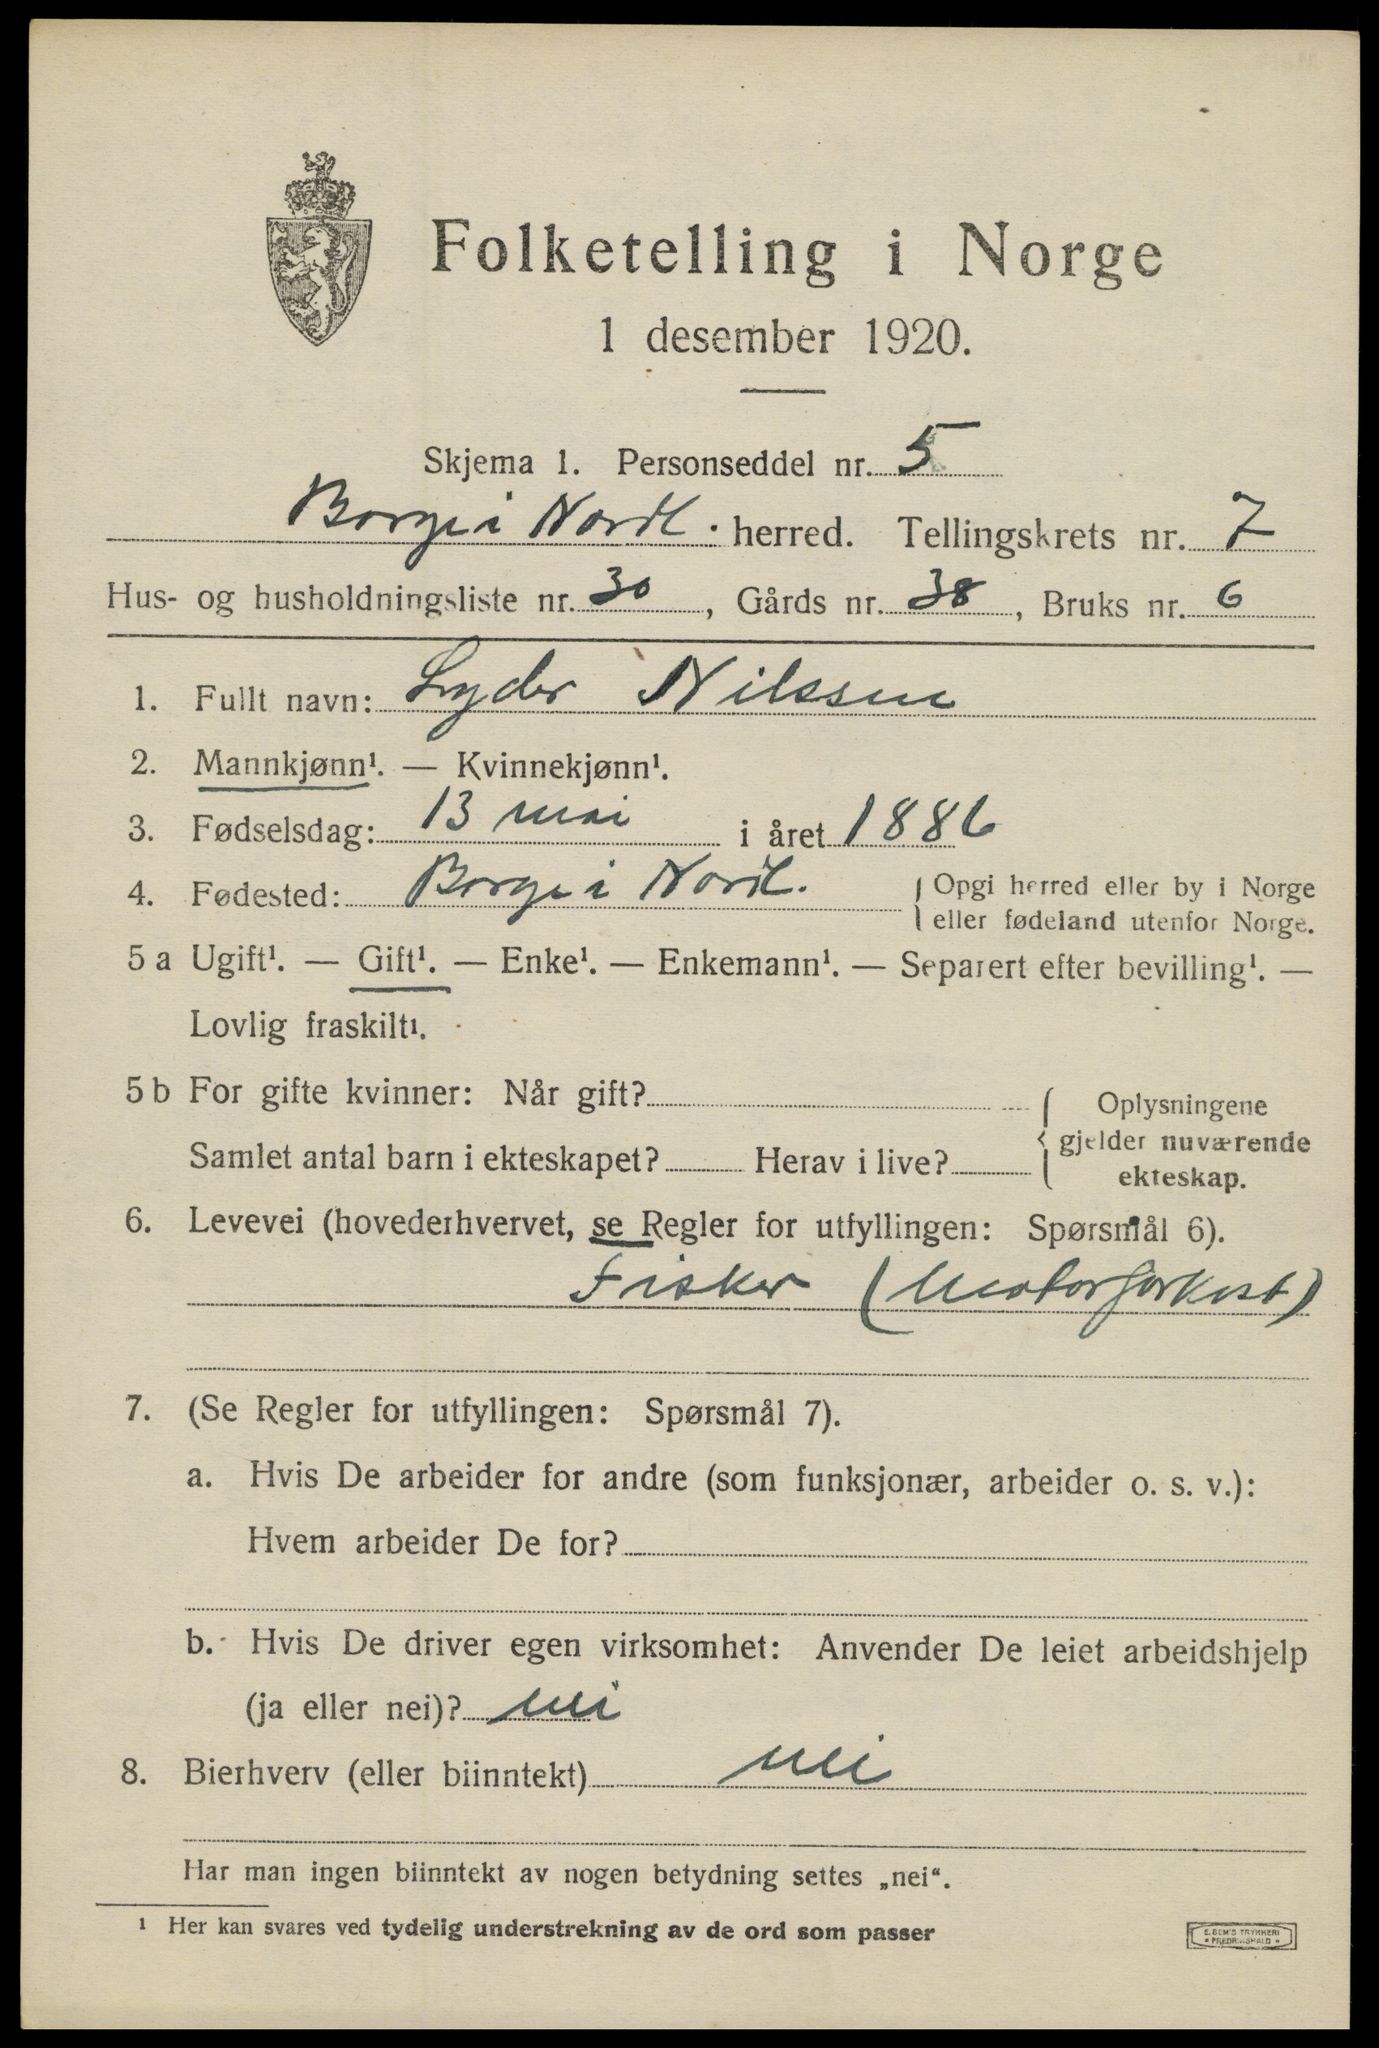 Folketelling i Norge
1 desember 1920.
Skjema 1. Personseddel nr. 5
Borge i Nordl. herred. Tellingskrets nr. 7
Hus- og husholdningsliste nr. 30, Gårds nr. 38, Bruks nr. 6
1. Fullt navn: Lyder Nilssen
2. Mannkjønn¹. — Kvinnekjønn¹.
3. Fødselsdag: 13 mai i året 1886
4. Fødested: Borge i Nordl. { Opgi herred eller by i Norge
eller fødeland utenfor Norge.
5 a Ugift¹. — Gift¹. — Enke¹. — Enkemann¹. — Separert efter bevilling¹. —
Lovlig fraskilt¹.
5 b For gifte kvinner: Når gift? { Oplysningene
gjelder nuværende
Samlet antal barn i ekteskapet? Herav i live?
ekteskap.
6. Levevei (hovederhvervet, se Regler for utfyllingen: Spørsmål 6).
Fisker (Motorforkost)
7. (Se Regler for utfyllingen: Spørsmål 7).
a. Hvis De arbeider for andre (som funksjonær, arbeider o. s. v.):
Hvem arbeider De for?
b. Hvis De driver egen virksomhet: Anvender De leiet arbeidshjelp
(ja eller nei)? nei
8. Bierhverv (eller biinntekt) nei
Har man ingen biinntekt av nogen betydning settes „nei“.
¹ Her kan svares ved tydelig understrekning av de ord som passer
E. SEM'S TRYKKERI
• FREDRIKSHALD •